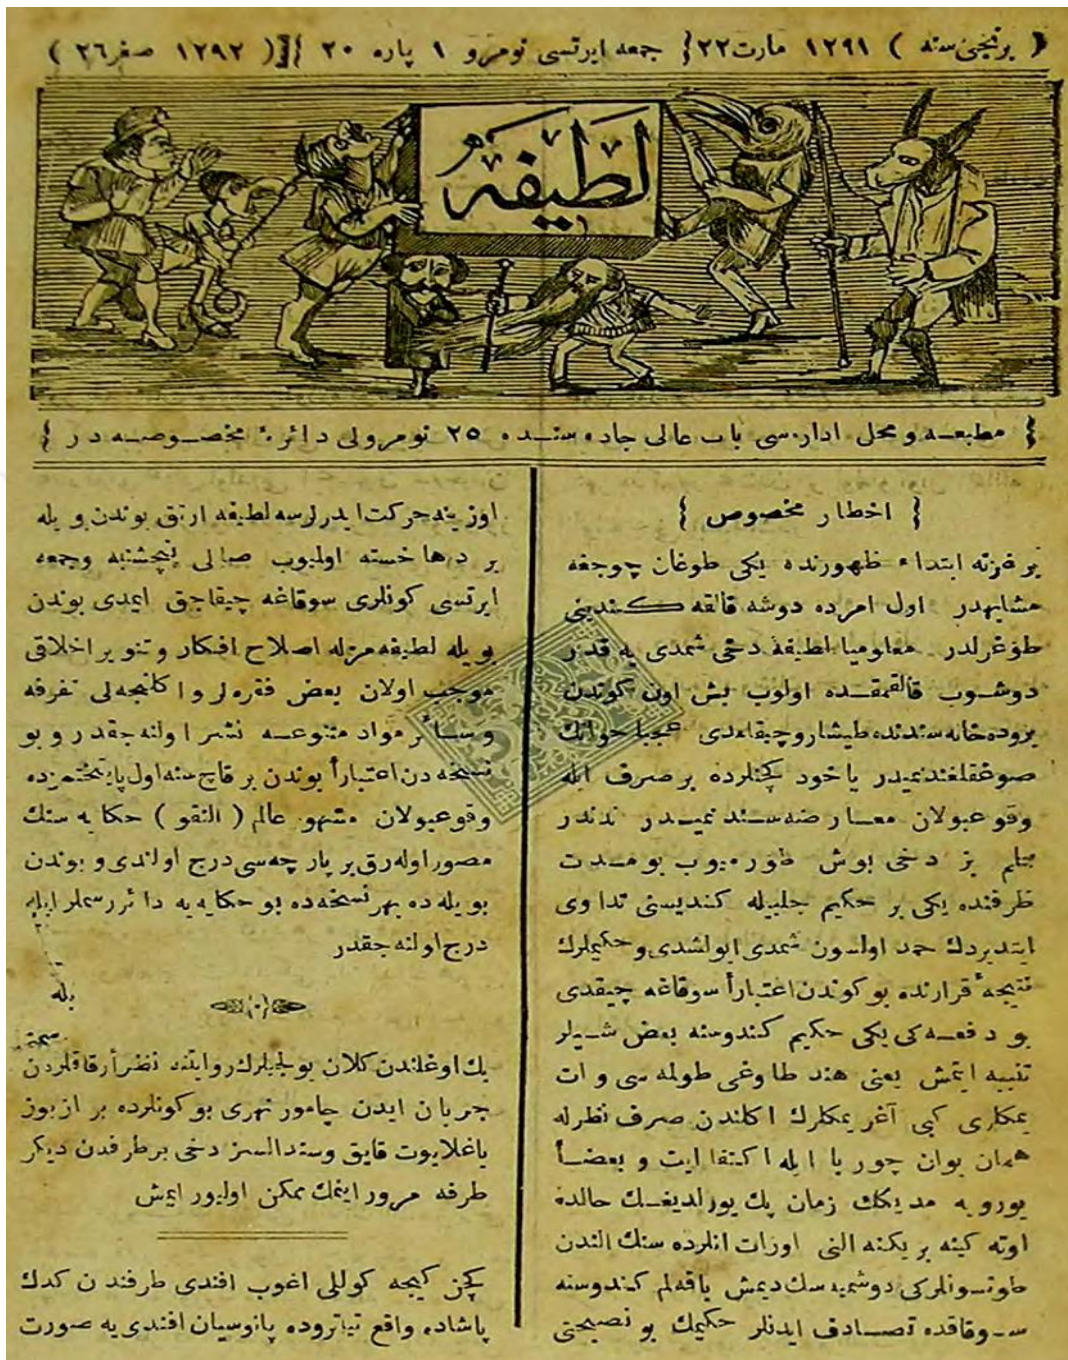 ( برنجی سنه ) ١٢٩١ مارت ٢٢ { جمعه ایرتسی نومرو ١ پاره ٢٠ } ( ١٢٩٢ صفر ٢٦ )
لطیفه
{ مطبعه و محل اداره‌سی باب عالی جاده سنده ٢٥ نومرولی دائرۀ مخصوصه در }
{ اخطار مخصوص }
بر غزته ابتداء ظهورنده یکی طوغان چوجغه
مشابهدر اول امرده دوشه قالقه کندینی
طوغرلدر معلومیا لطیفه دخی شمدی یه قدر
دوشوب قالقمقده اولوب بش اون کوندن
برو خانه سندنده طیشارو چیقامدی عجبا حوانك
صوغقلغندنمیدر یاخود کچنلرده بر صرف ایله
وقوعبولان معارضه سندنمیدر ندندر
بیلم بز دخی بوش طورمیوب بو مدت
ظرفنده یکی بر حکیم جلبیله کندیسنی تداوی
ایتدیردك حمد اولسون شمدی ایولشدی و حکیملرك
نتیجۀ قرارنده بو کوندن اعتباراً سوقاغه چیقدی
بو دفعه کی یکی حکیم کندوسنه بعض شیلر
تنبیه ایتمش یعنی هند طاوغی طولمه سی و ات
یمکلری کبی آغر یمکلرك اکلندن صرف نظرله
همان یوان چوربا ایله اکتفا ایت و بعضاً
یورویه مدیکك زمان پك یورلدیغك حالده
اوته کینه بریکنه النی اوزات انلرده سنك الندن
طوتسونلرکی دوشمیه سك دیمش باقه لم کندوسنه
سوقاقده تصادف ایدنلر حکیمك بو نصیحتی
اوزرینه حرکت ایدرلرسه لطیفه ارتق بوندن ویله
بر دها خسته اولمیوب صالی پنجشنبه وجمعه
ایرتسی کونلری سوقاغه چیقاجق ایمدی بوندن
بویله لطیفه مزله اصلاح افکار و تنویر اخلاقی
موجب اولان بعض فقره لر و اکلنجه لی تفرقه
و سائر مواد متنوعه نشر اولنه جقدر و بو
نسخه دن اعتباراً بوندن بر قاچ سنه اول پایتختمزده
وقوعبولان مشهور عالم ( التقو ) حکایه سنك
مصور اوله رق بر پارچه سی درج اولندی و بوندن
بویله ده بهر نسخه ده بو حکایه یه دائر رسملر ایله
درج اولنه جقدر
بك اوغلندن کلان یولجیلرك روایتنه نظراً رقاقلردن
جریان ایدن چامور نهری بو کونلرده بر از بوز
باغلایوت قایق وسندالسز دخی بر طرفدن دیکر
طرفه مرور ایتمك ممکن اولیور ایمش
کچن کیجه کوللی اغوب افندی طرفندن کدك
پاشاده واقع تیاتروده پانوسیان افندی یه صورت